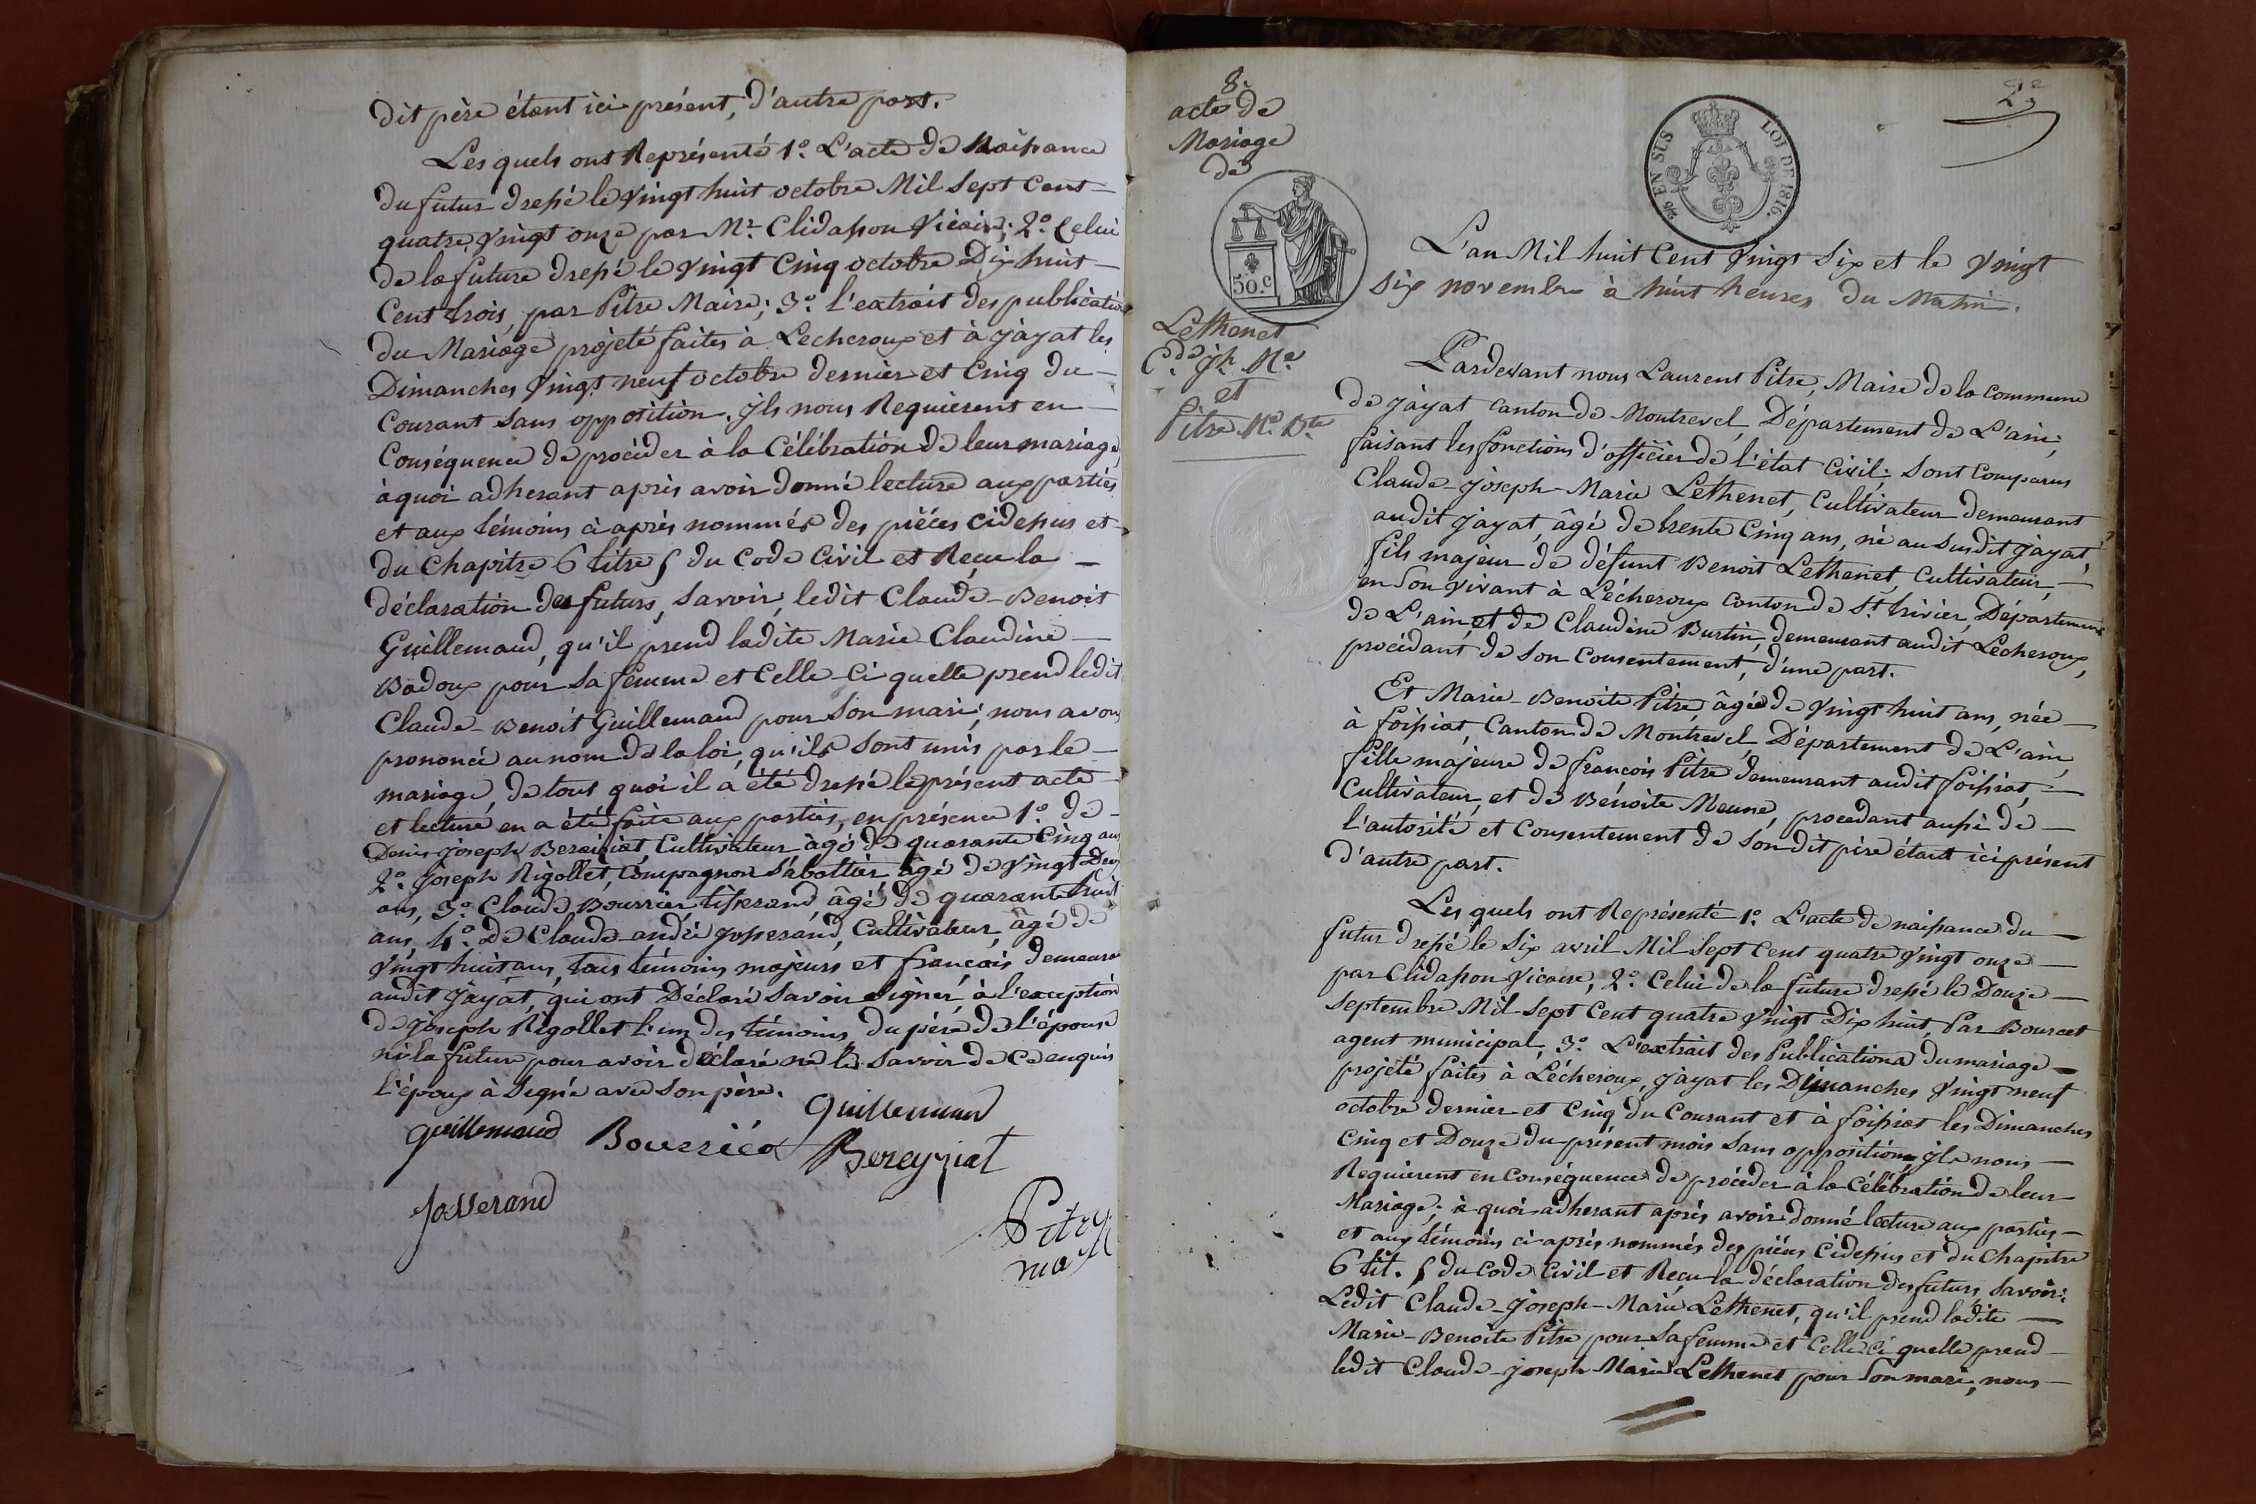 dit père étant ici présent, d'autre part.
Les quels ont Représenté 1.º L'acte de Naissance
du futur dressé le vingt huit octobre Mil Sept Cent
quatre vingt onze par Mr. Clidasson Vicaire; 2.º Celui
de la future dressé le vingt Cinq octobre Dix huit
Cent trois, par Pitre Maire; 3.º l'extrait des publications
du Mariage projeté faites à Lecheroux et à jayat les
Dimanches Vingt neuf octobre dernier et Cinq du
Courant sans opposition. Jls nous Requierent en
Conséquence de procéder à la Célébration de leur mariage
à quoi adherant après avoir donné lecture aux parties
et aux témoins ci après nommés des pièces cidessus et
du Chapitre 6 titre 5 du Code Civil et Reçu la
déclaration des futurs, Savoir, ledit Claude-Benoit
Guillemaud, qu'il prend ladite Marie Claudine
Badoux pour Sa femme et Celle-Ci quelle prend ledit
Claude-Benoit Guillemaud pour Son mari, nous avons
prononcé au nom de la loi, qu'ils Sont unis par le
mariage, de tout quoi il a été dressé le présent acte
et lecture en a été faite aux parties, en présence 1.º de
Denis joseph Bereiziat, Cultivateur âgé de quarante Cinq ans
2.º joseph Rigollet, Compagnon Sabottier âgé de Vingt Deux
ans, 3.º Claude Bourrier tisserand âgé de quarante huit
ans, 4.º de Claude-andré josserand, Cultivateur, âgé de
Vingt huit ans, tous témoins majeurs et français demeurant
audit Jayat, qui ont Déclaré Savoir Signer, à l'exception
de joseph Rigollet l'un des témoins, du père de l'épouse
ni la future pour avoir déclaré ne le Savoir de Ce enquis
l'époux à Signé avec Son père.
Guillemaud
guillemaud Bourrier Bereyziat
Josserand
Pitre
maire
8.e
acte de
Mariage
de
50.c
Lethenet
C.de Jh. M.e
et
Pitre M.e B.te
2e
EN SUS LOI DE 1816.
L'an Mil huit Cent Vingt Six et le Vingt
Six novembre à huit heures du Matin.
Pardevant nous Laurent Pitre, Maire de la Commune
de Jayat Canton de Montrevel, Département de L'ain,
faisant les fonctions d'officier de l'état Civil; Sont Comparus
Claude-Joseph-Marie Lethenet, Cultivateur demeurant
audit Jayat, âgé de trente Cinq ans, né au Susdit Jayat,
fils majeur de défunt Benoit Lethenet, Cultivateur,
en Son vivant à Lécheroux Canton de St. trivier, Département
de L'ain, et de Claudine Burtin, demeurant audit Lecheroux,
procédant de Son Consentement, d'une part.
Et Marie-Benoite Pitre, âgée de Vingt huit ans, née
à foissiat, Canton de Montrevel Département de L'ain,
fille majeure de françois Pitre demeurant audit foissiat,
Cultivateur, et de Bénoite Meune, procedant aussi de
l'autorité et Consentement de Son dit père étant ici présent
d'autre part.
Les quels ont Représenté 1.º L'acte de naissance du
futur dressé le Six avril Mil Sept Cent quatre Vingt onze
par Clidasson Vicaire, 2.º Celui de la future dressé le Douze
Septembre Mil Sept Cent quatre Vingt Dix huit, Par Bourcet
agent municipal, 3.º L'extrait des Publications du mariage
projété faites à Lécheroux, Jayat les Dimanches Vingt neuf
octobre dernier et Cinq du Courant et à foissiat les Dimanches
Cinq et Douze du présent mois Sans opposition, Jls nous
Requierent en Conséquence de procéder à la Célébration de leur
Mariage; à quoi adherant après avoir donné lecture aux parties
et aux témoins ci après nommés des pièces Cidessus et du Chapitre
6 tit. 5 du Code Civil et Reçu la déclaration des futurs Savoir:
Ledit Claude-Joseph-Marie Lethenet, qu'il prend ladite
Marie-Benoite Pitre pour Sa femme et Celle Ci quelle prend
ledit Claude-Joseph Marie Lethenet pour Son mari, nous